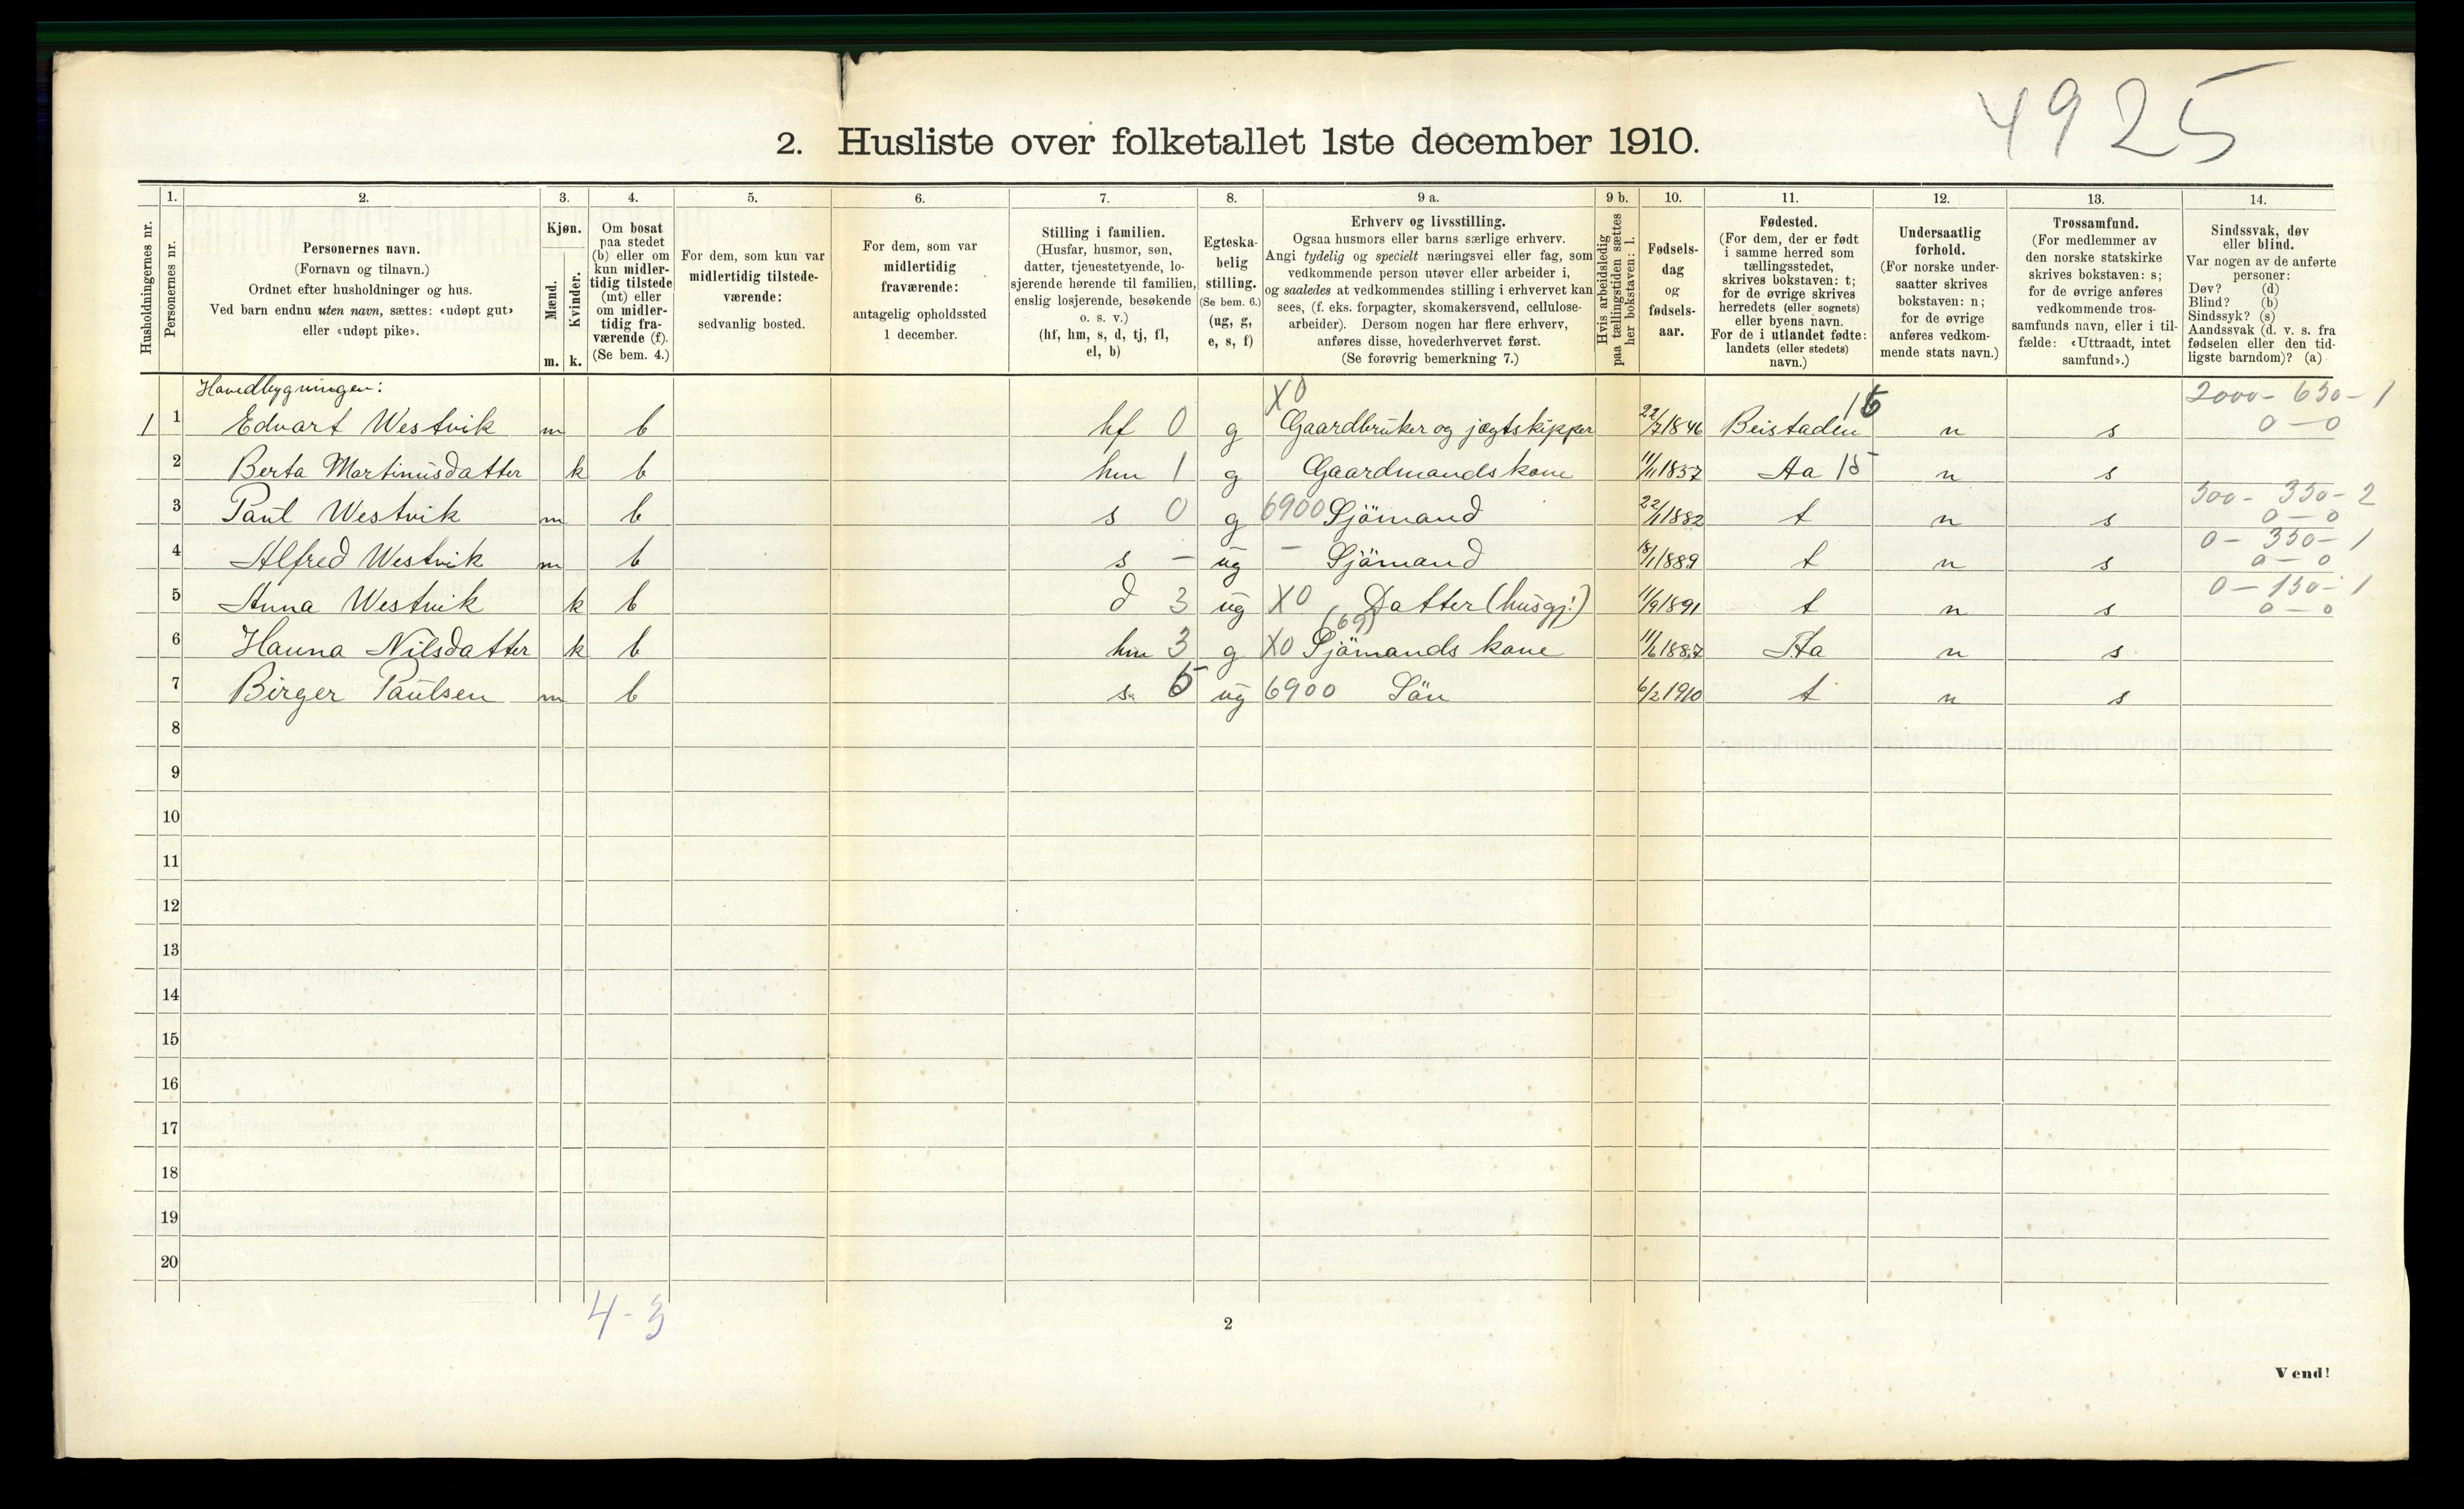 4925
2. Husliste over folketallet 1ste december 1910.
Husholdningernes nr.
1.
Personernes nr.
2.
Personernes navn.
(Fornavn og tilnavn.)
Ordnet efter husholdninger og hus.
Ved barn endnu uten navn, sættes: «udøpt gut»
eller «udøpt pike».
3.
Kjøn.
Mænd.
Kvinder.
m. k.
4.
Om bosat
paa stedet
(b) eller om
kun midler-
tidig tilstede
(mt) eller
om midler-
tidig fra-
værende (f).
(Se bem. 4.)
5.
For dem, som kun var
midlertidig tilstede-
værende:
sedvanlig bosted.
6.
For dem, som var
midlertidig
fraværende:
antagelig opholdssted
1 december.
7.
Stilling i familien.
(Husfar, husmor, søn,
datter, tjenestetyende, lo-
sjerende hørende til familien,
enslig losjerende, besøkende
o. s. v.)
(hf, hm, s, d, tj, fl,
el, b)
8.
Egteska-
belig
stilling.
(Se bem. 6.)
(ug, g,
e, s, f)
9 a.
Erhverv og livsstilling.
Ogsaa husmors eller barns særlige erhverv.
Angi tydelig og specielt næringsvei eller fag, som
vedkommende person utøver eller arbeider i,
og saaledes at vedkommendes stilling i erhvervet kan
sees, (f. eks. forpagter, skomakersvend, cellulose-
arbeider). Dersom nogen har flere erhverv,
anføres disse, hovederhvervet først.
(Se forøvrig bemerkning 7.)
9 b.
Hvis arbeidsledig
paa tællingstiden sættes
her bokstaven: l.
10.
Fødsels-
dag
og
fødsels-
aar.
11.
Fødested.
(For dem, der er født
i samme herred som
tællingsstedet,
skrives bokstaven: t;
for de øvrige skrives
herredets (eller sognets)
eller byens navn.
For de i utlandet fødte:
landets (eller stedets)
navn.)
12.
Undersaatlig
forhold.
(For norske under-
saatter skrives
bokstaven: n;
for de øvrige
anføres vedkom-
mende stats navn.)
13.
Trossamfund.
(For medlemmer av
den norske statskirke
skrives bokstaven: s;
for de øvrige anføres
vedkommende tros-
samfunds navn, eller i til-
fælde: «Uttraadt, intet
samfund».)
14.
Sindssvak, døv
eller blind.
Var nogen av de anførte
personer:
Døv? (d)
Blind? (b)
Sindssyk? (s)
Aandssvak (d. v. s. fra
fødselen eller den tid-
ligste barndom)? (a)
Hovedbygningen: X0 2000 - 650 - 1
1 1 Edvart Westvik m b hf 0 g Gaardbruker og jægtskipper 22/7 1846 Beistaden n s 0 - 0
2 Berta Martinusdatter k b hm 1 g Gaardmandskone 11/11 1857 Aa 15 n s
500 - 350 - 2
3 Paul Westvik m b s 0 g 6900 Sjömand 22/1 1882 t n s 0 - 0
0 - 350 - 1
4 Alfred Westvik m b s - ug - Sjömand 18/1 1889 t n s 0 - 0
0 - 150 - 1
5 Anna Westvik k b d 3 ug X0 Datter (husgj:) 11/9 1891 t n s 0 - 0
(69)
6 Hanna Nilsdatter k b hm 3 g X0 Sjömands kone 11/6 1887 Aa n s
7 Birger Paulsen m b s 5 ug 6900 Sön 6/2 1910 t n s
8
9
10
11
12
13
14
15
16
17
18
19
20
4-3
2
Vend!